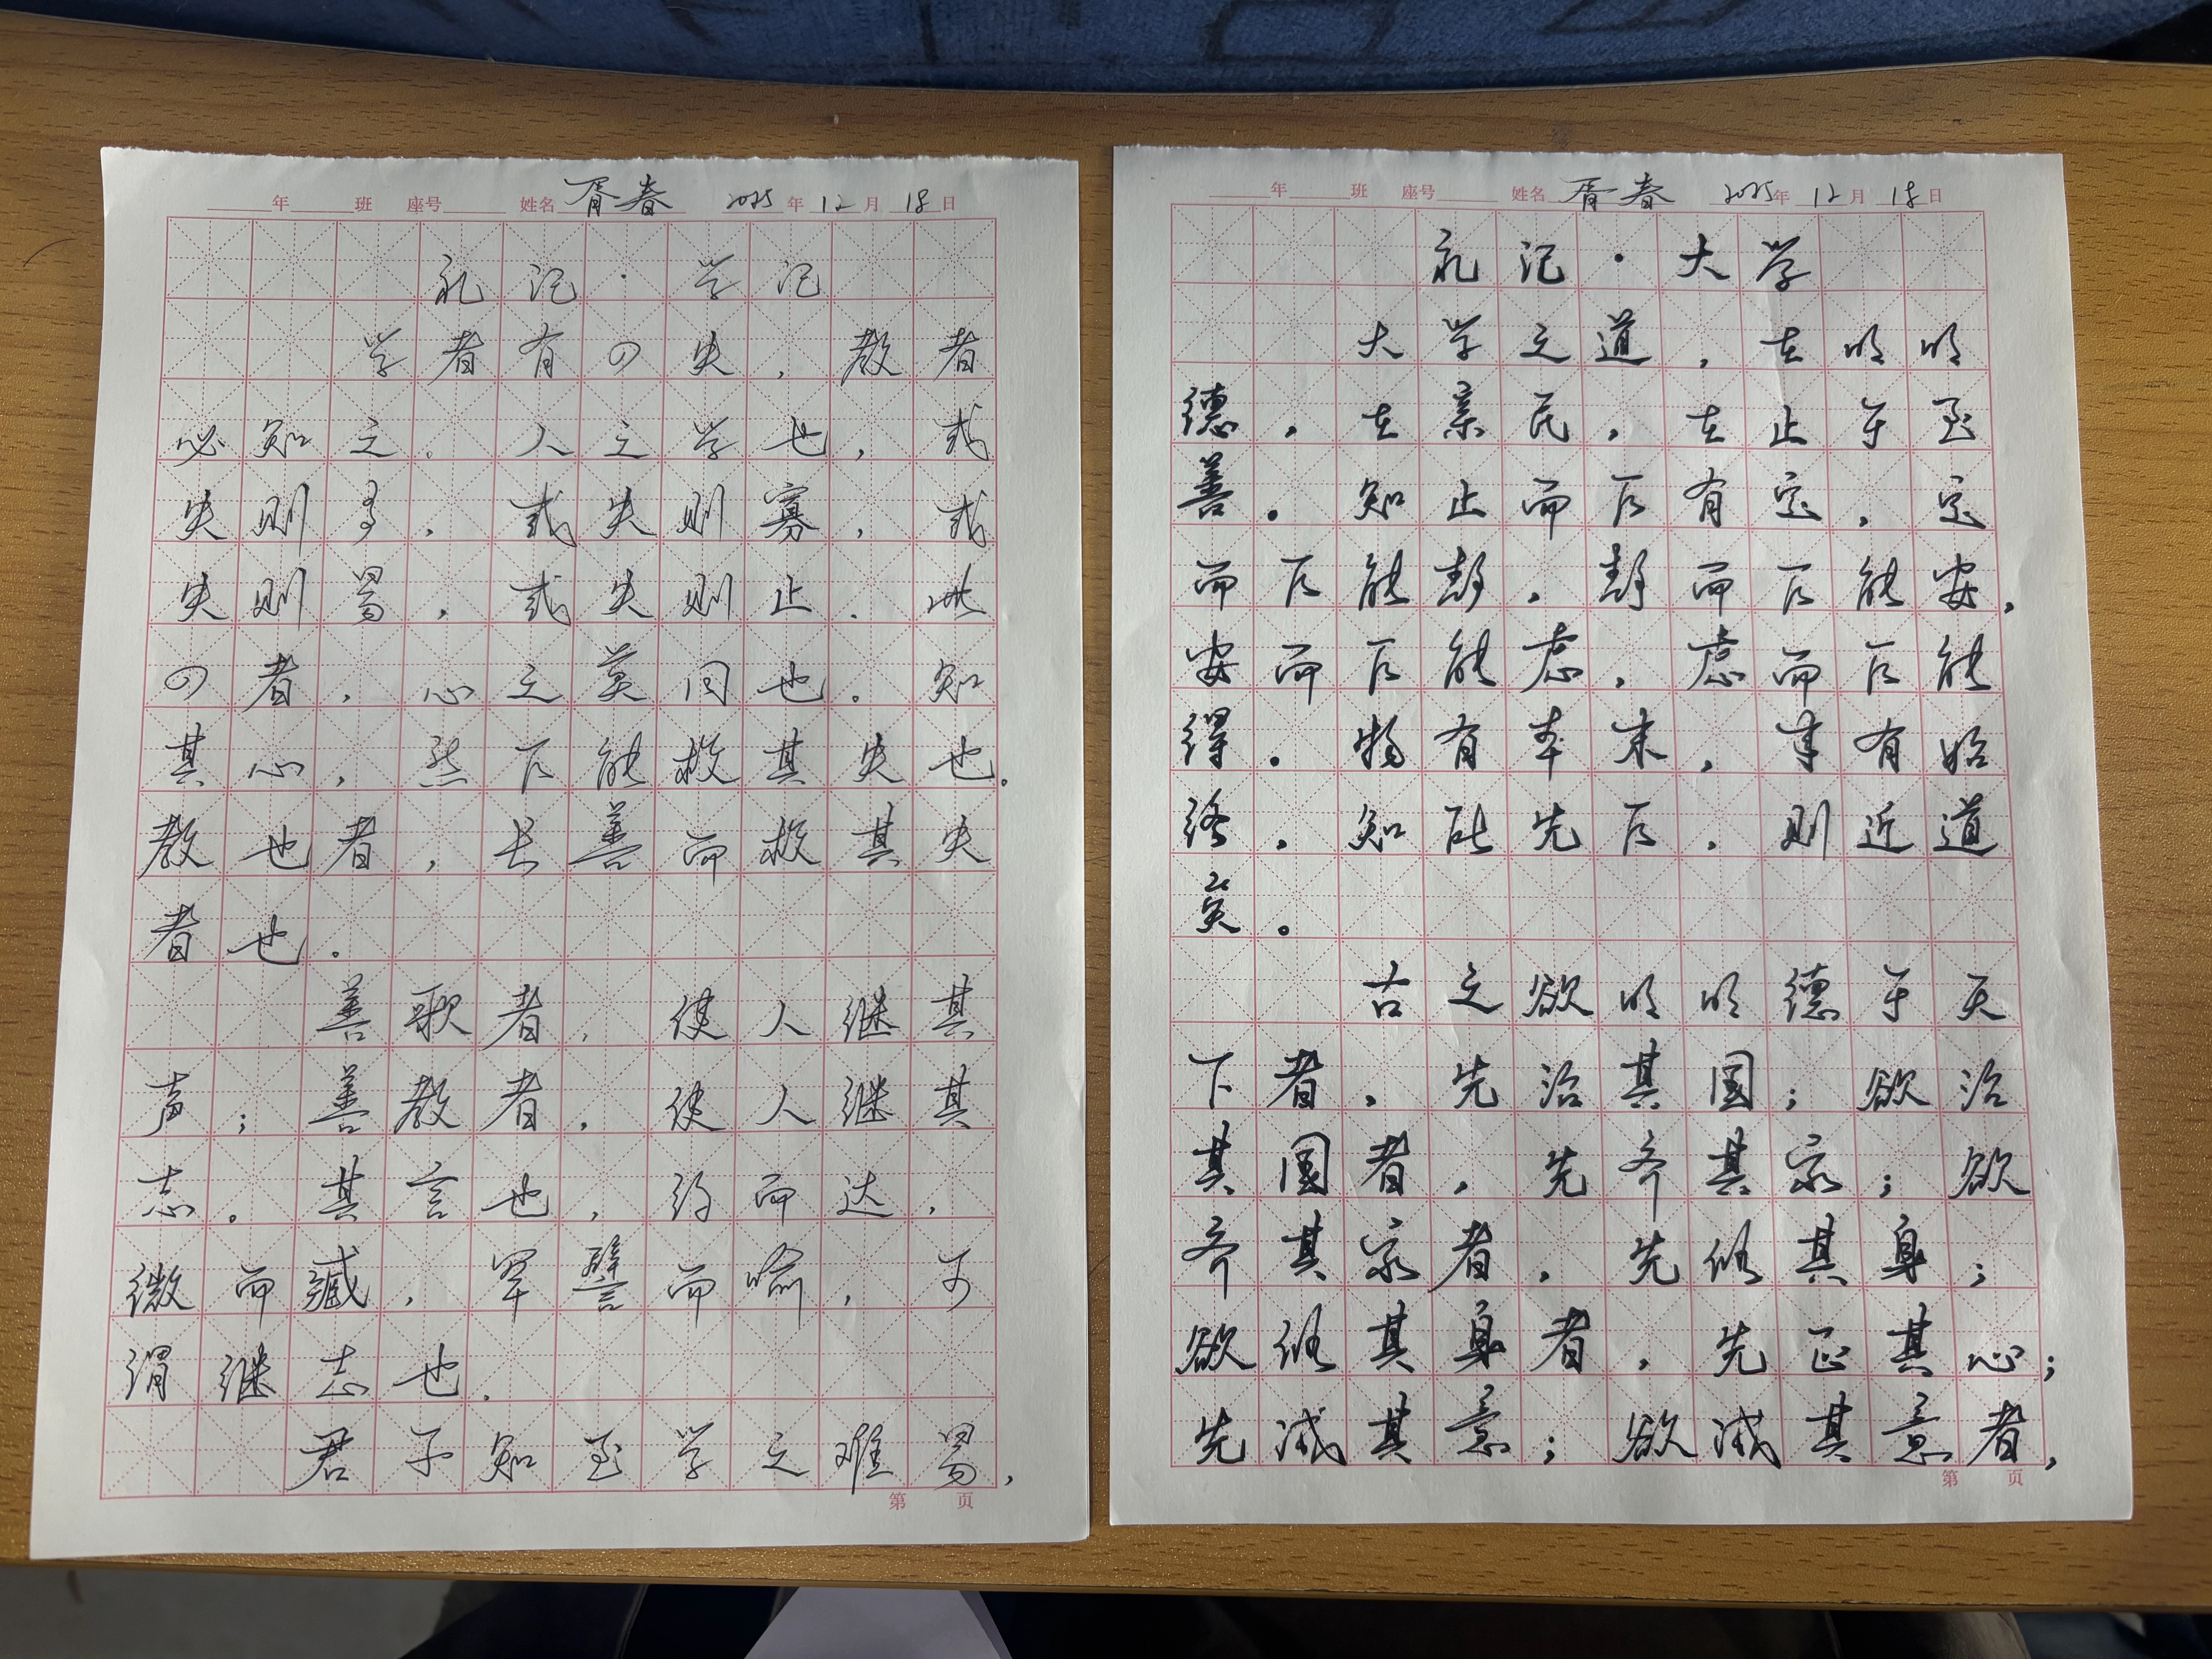 年 班 座号 姓名 胥春 2025年12月18日
礼记·学记
学者有四失，教者
必知之。人之学也，或
失则多，或失则寡，或
失则易，或失则止。此
四者，心之莫同也。知
其心，然后能救其失也。
教也者，长善而救其失
者也。
善歌者，使人继其
声；善教者，使人继其
志。其言也，约而达，
微而臧，罕譬而喻，可
谓继志也。
君子知至学之难易，
第 页
年 班 座号 姓名 胥春 2025年12月18日
礼记·大学
大学之道，在明明
德，在亲民，在止于至
善。知止而后有定，定
而后能静，静而后能安，
安而后能虑，虑而后能
得。物有本末，事有始
终，知所先后，则近道
矣。
古之欲明明德于天
下者，先治其国；欲治
其国者，先齐其家；欲
齐其家者，先修其身；
欲修其身者，先正其心；
先诚其意；欲诚其意者，
第 页